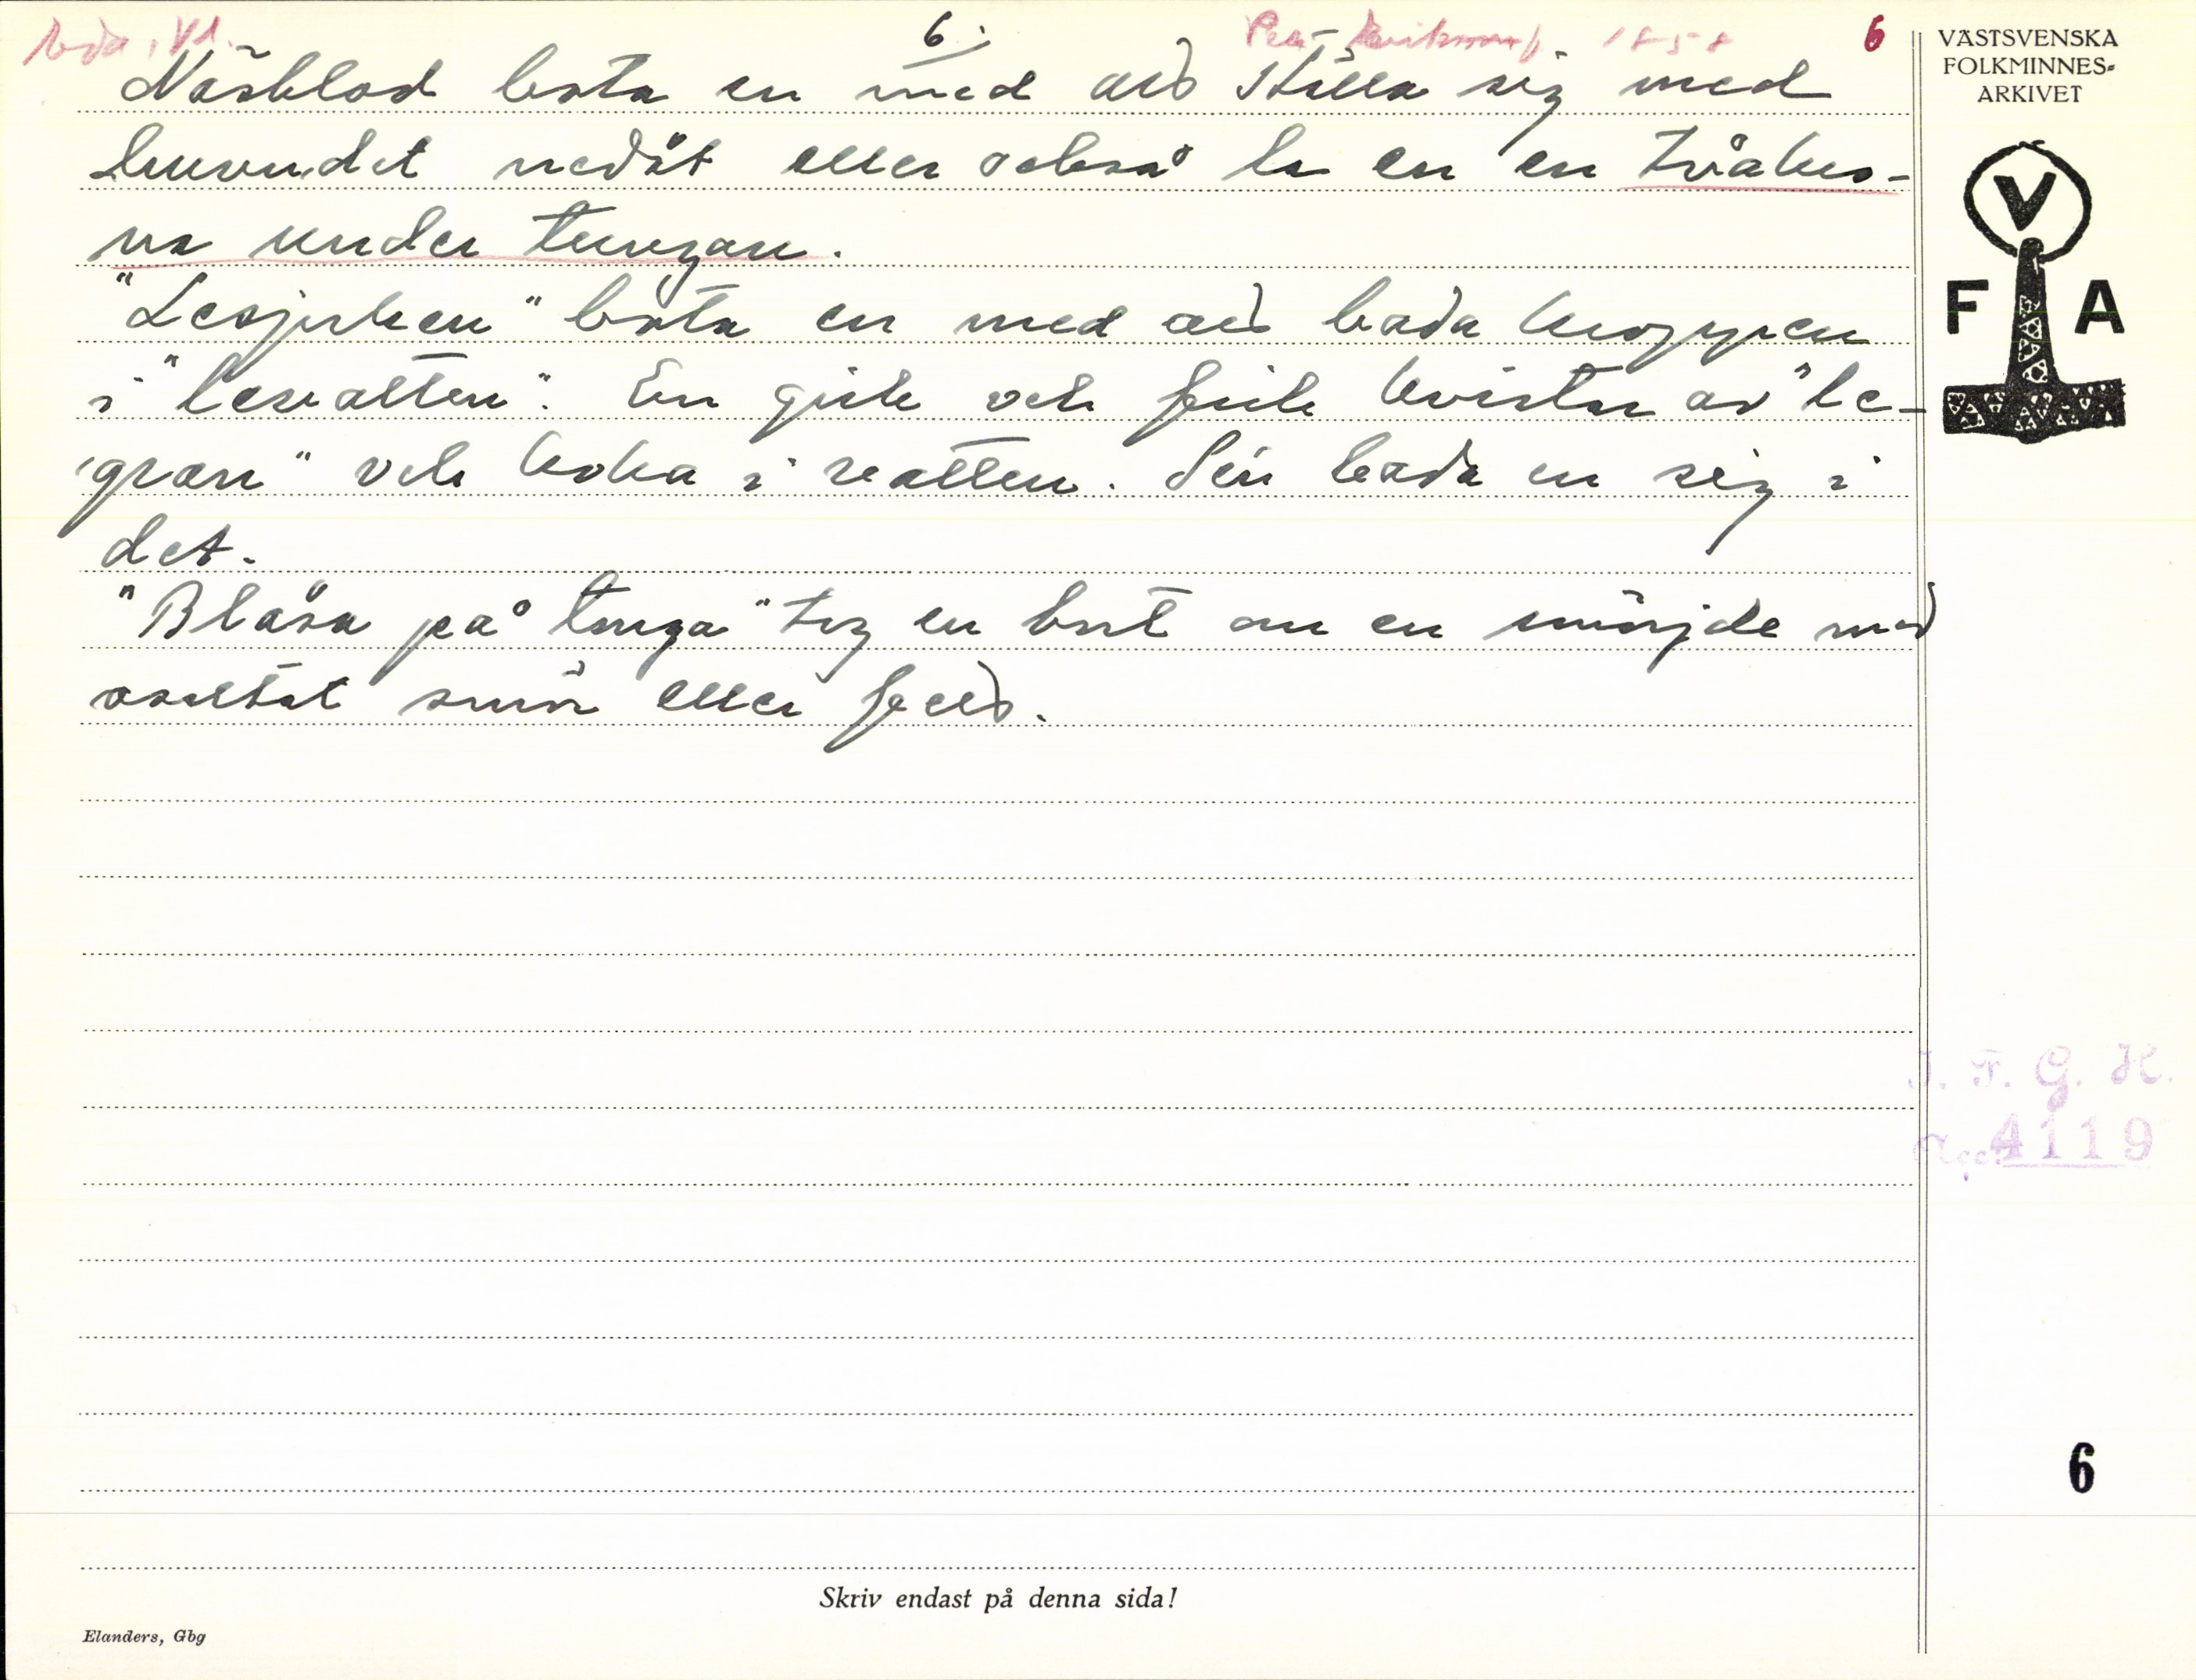 6.
6
Näsblod bota en med att ställa sig med
huvudet nedåt eller också la en en tvåkro-
na under tungan.
"Lesjuken" bota en med att bada kroppen
i "levatten". En gick och fick kvistar av "le-
gran" och koka i vatten. Sen bada en sig i
det.
"Blåsa på tonga" tog en bort om en smörjde med
osaltat smör eller fett.
VÄSTSVENSKA
FOLKMINNES-
ARKIVET
V
F A
I. F. G. H.
Acc. 4119
6
Skriv endast på denna sida!
Elanders, Gbg